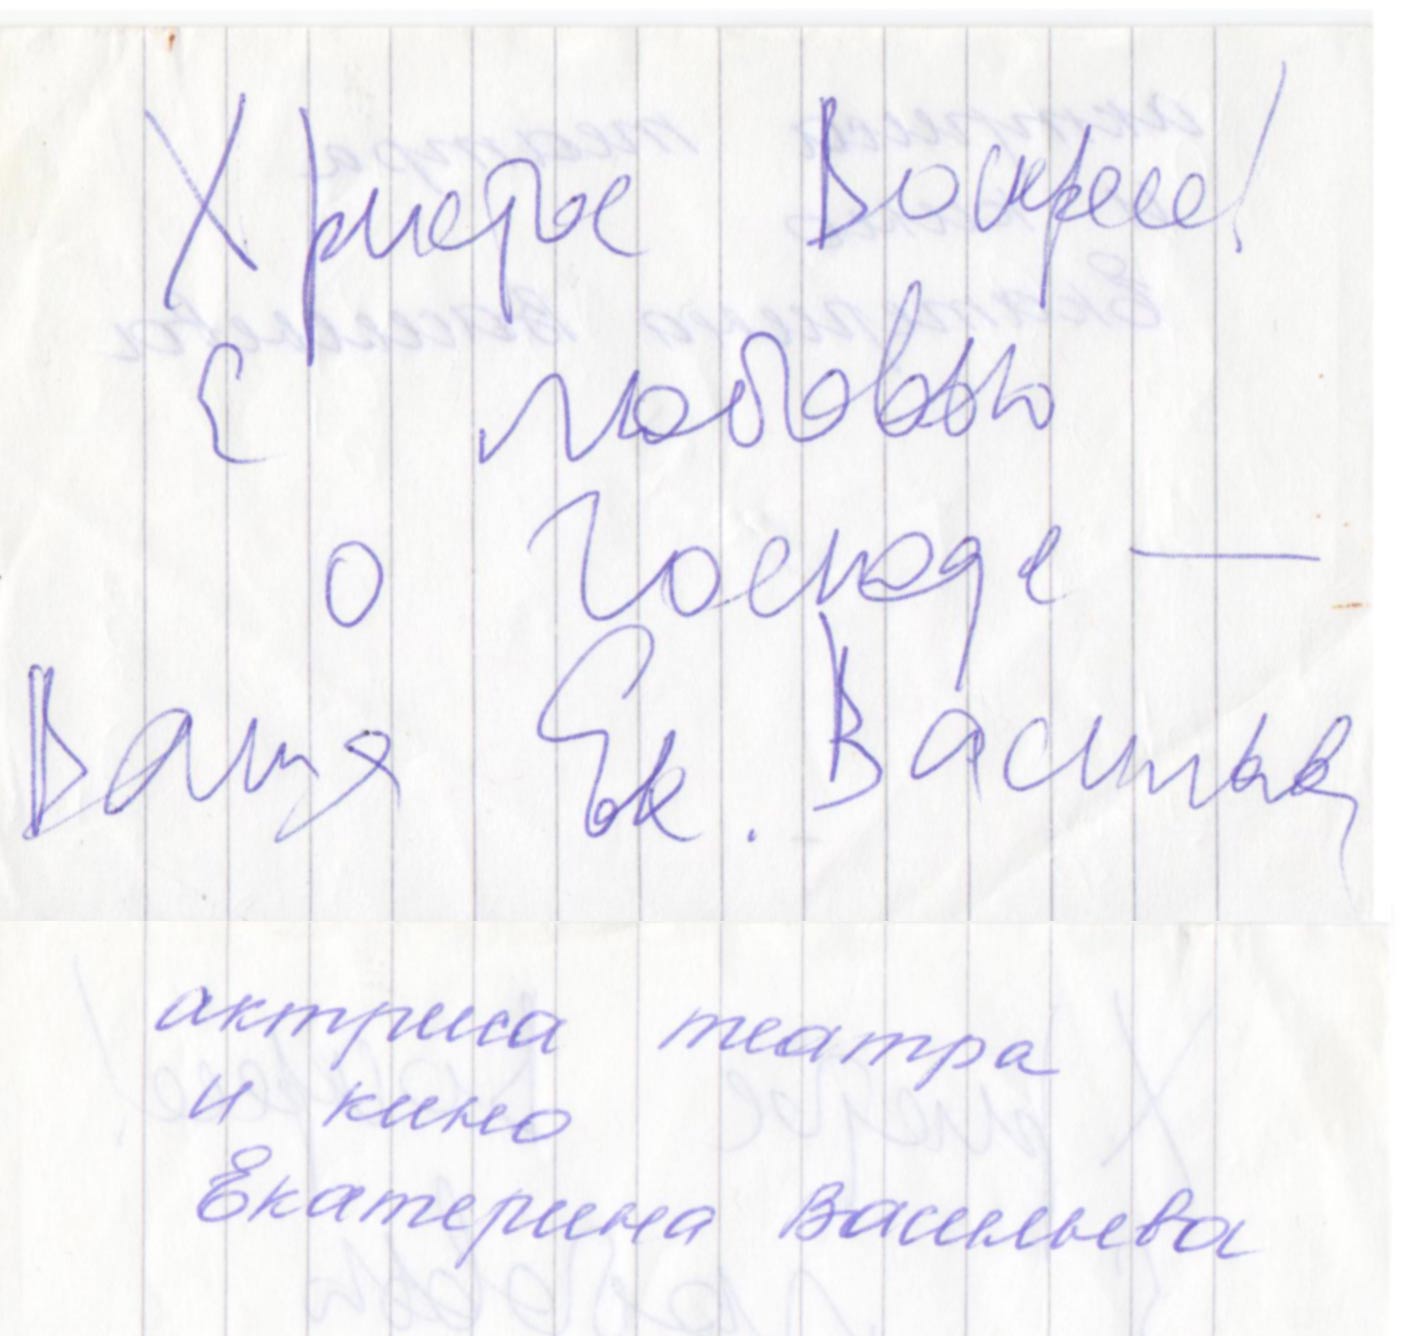 Христос Воскресе!
С любовью
о Господе —
Ваша Ек. Васильева
актриса театра
и кино
Екатерина Васильева